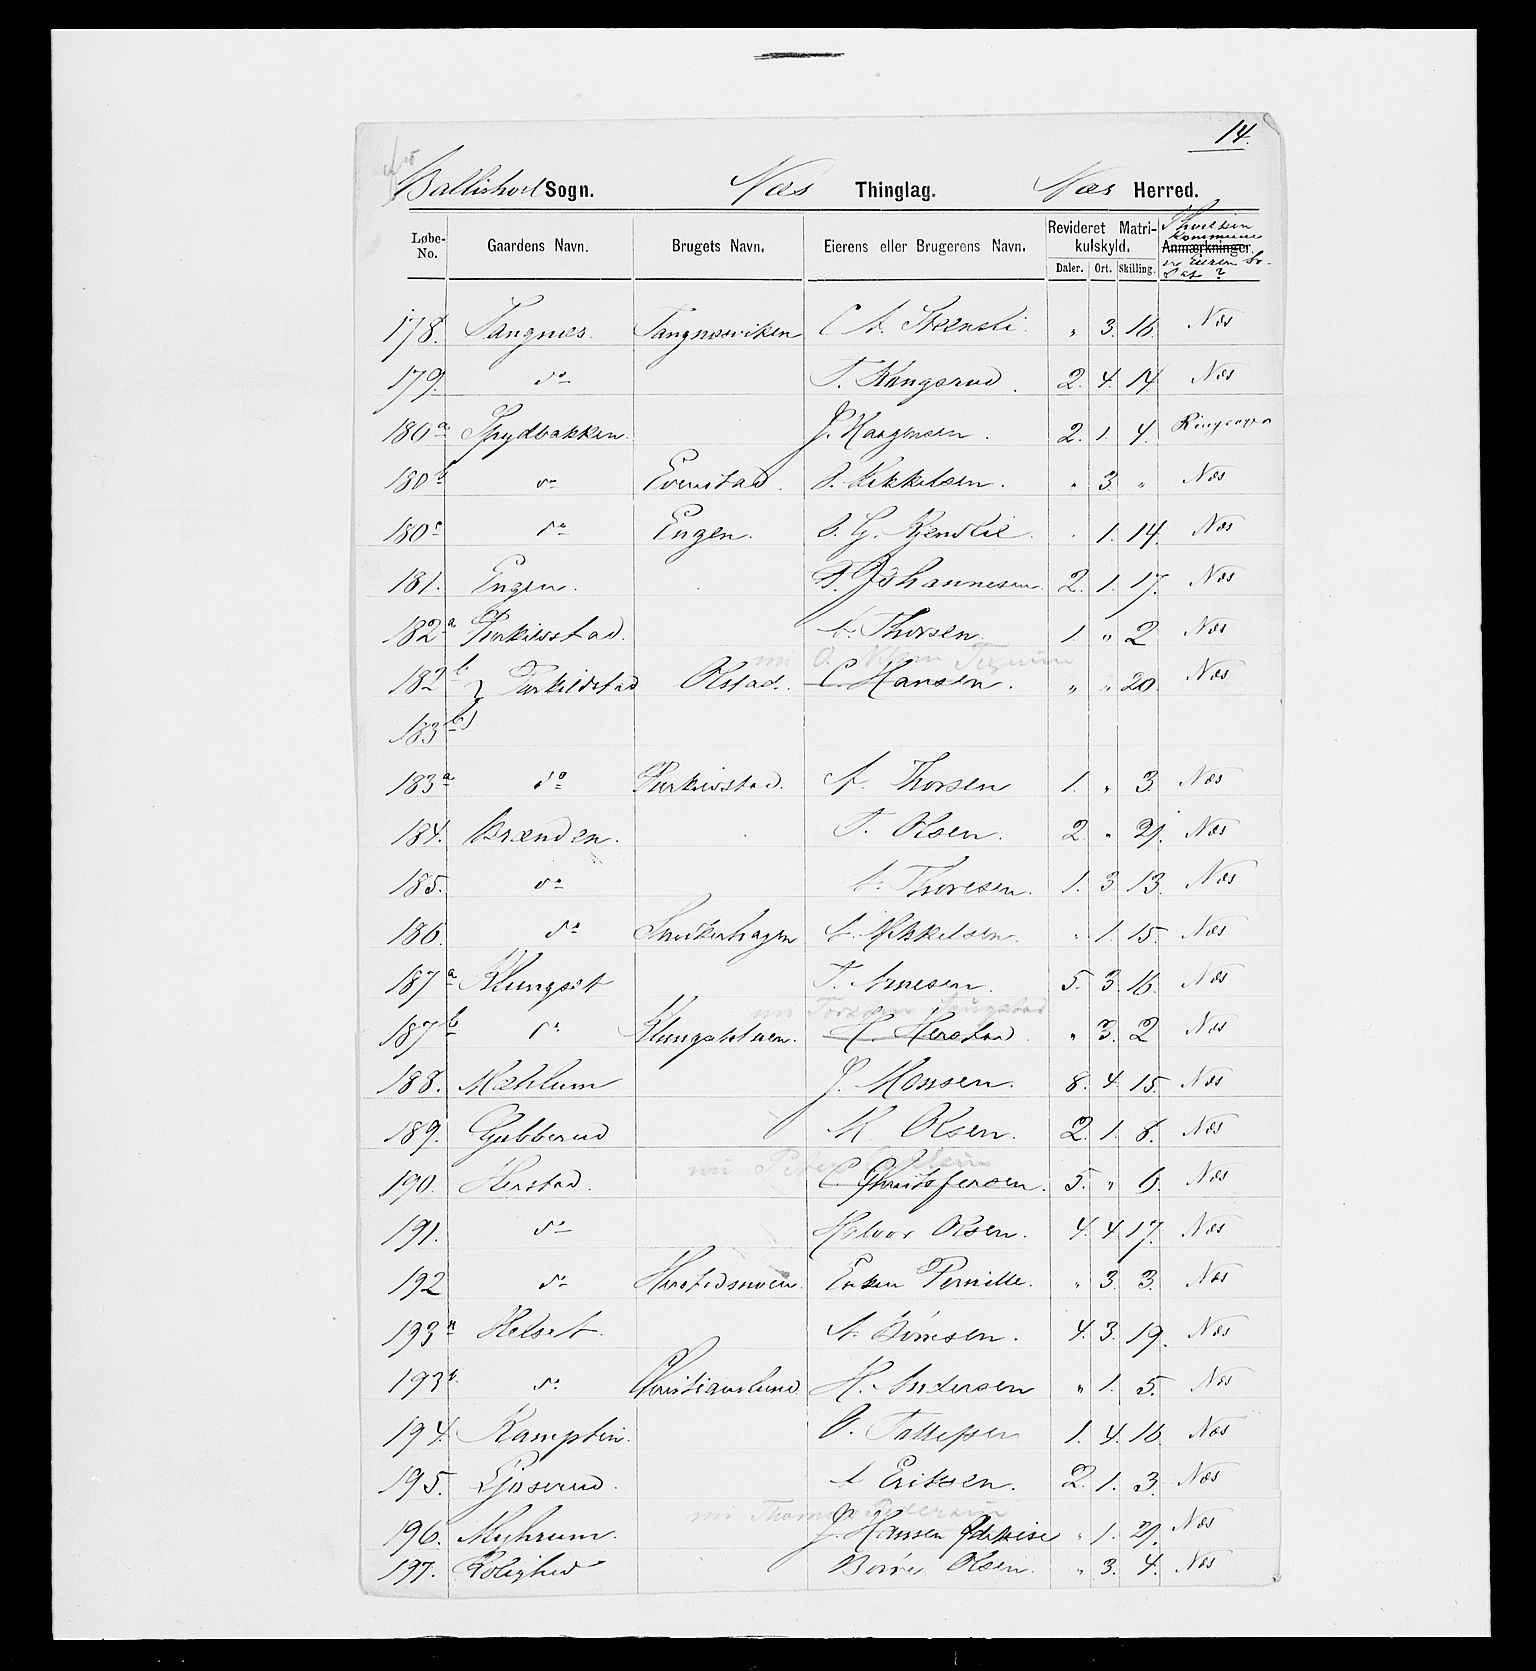 14.
Sogn. Næs Thinglag. Næs Herred.
Løbe-No. Gaardens Navn. Brugets Navn. Eierens eller Brugerens Navn. Revideret Matrikulskyld. Daler. Ort. Skilling. Anmærkninger. Hvilken Kommune er Eieren bosat?
178. Tangnæs. Tangnæsviken C A. " 3. 16. Næs
179. do T. Kongsrud. 2. 4. 14. Næs
180a Spydbakken. J. Haagensen. 2. 1. 4.
180b do Evenstad. Mikkelsen. " 3. " Næs
180c do Engen. O. G. . 1. 14. Næs
181. Engen. Johannesen. 2. 1. 17. Næs
182a A. Thorsen. 1. " 2 Næs
nu O.
182b Olstad. C. Hansen. " " 20. Næs
183b
183a do A. Thorsen 1. " 3. Næs
184. Brænden. T. Olsen. 2. " 21. Næs
185. do A. Thoresen. 1. 3. 13. Næs
186. do A. Mikkelsen. " 1. 15. Næs
187a Klungset T. Arnesen. 5. 3. 16. Næs
nu
187b do H. Herstad. " 3. 2 Næs
188. Mæhlum J. Hansen. 8. 4. 15. Næs
189. Gubberud K Olsen. 2. 1. 8. Næs
nu Peter
190. Herstad. C. Christofersen. 5. " 6. Næs
191. do Halvor Olsen. 4. 4. 17. Næs
192 do Herstadmoen. Enken Pernille. " 3. 3. Næs
193a Helset. A. 4. 3. 19. Næs
193b do Christianslund H. Andersen " 1. 5. Næs
194. O. Tollefsen 1. 4. 16. Næs
195. A Eriksen. 2. 1. 3. Næs
nu Thomas Pedersen
196. Myhrum. J. Hansen " 1. 21. Næs
197. Rolighed Olsen. " 3. 4. Næs